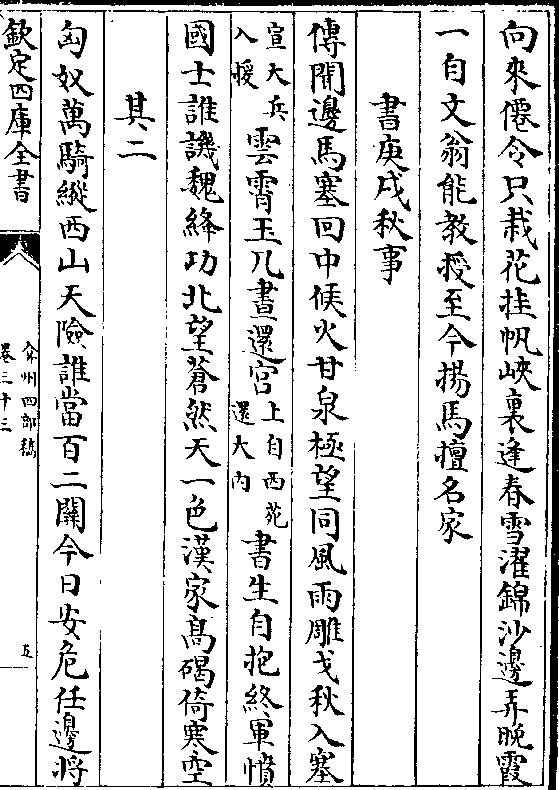 向來僊令只栽花挂帆峽裏逢春雪濯錦沙邊弄晚霞
一自文翁能教授至今揚馬擅名家
書庚戌秋事
傳聞邊馬塞回中候火甘泉極望同風雨雕戈秋入塞
宣大兵入援雲霄玉几晝還宮上自西苑還大內書生自抱終軍憤
國士誰譏魏絳功北望蒼然天一色漢家高碣倚寒空
其二
匈奴萬騎縱西山天險誰當百二關今日安危任邊將
欽定四庫全書
弇州四部稿
卷三十三
五